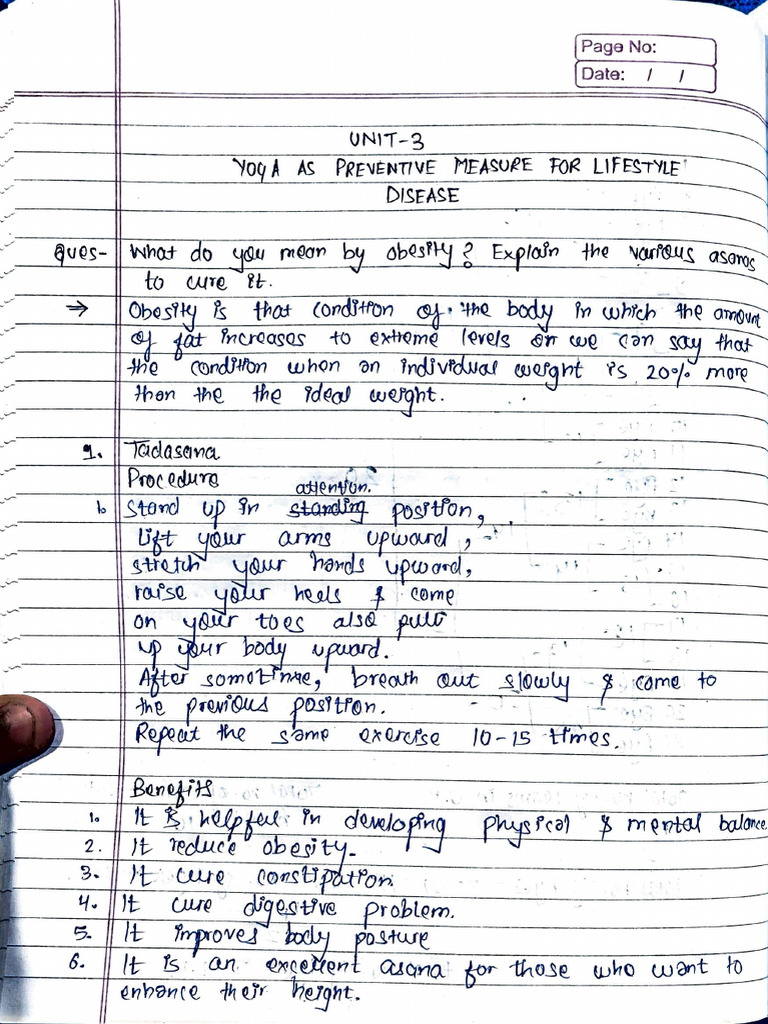 Page No:
Date: / /
UNIT-3
YOGA AS PREVENTIVE MEASURE FOR LIFESTYLE
DISEASE
Ques- What do you mean by obesity? Explain the various asanas
to cure it.
⇒ Obesity is that condition of the body in which the amount
of fat increases to extreme levels or we can say that
the condition when an individual weight is 20% more
than the the ideal weight.
1. Tadasana
Procedure
attention.
1. Stand up in standing position,
Lift your arms upward,
stretch your hands upward,
raise your heels & come
on your toes also pull
up your body upward.
After sometime, breath out slowly & come to
the previous position.
Repeat the same exercise 10-15 times.
Benefits
1. It is helpful in developing physical & mental balance
2. It reduce obesity.
3. It cure constipation.
4. It cure digestive problem.
5. It improves body posture
6. It is an excellent asana for those who want to
enhance their height.